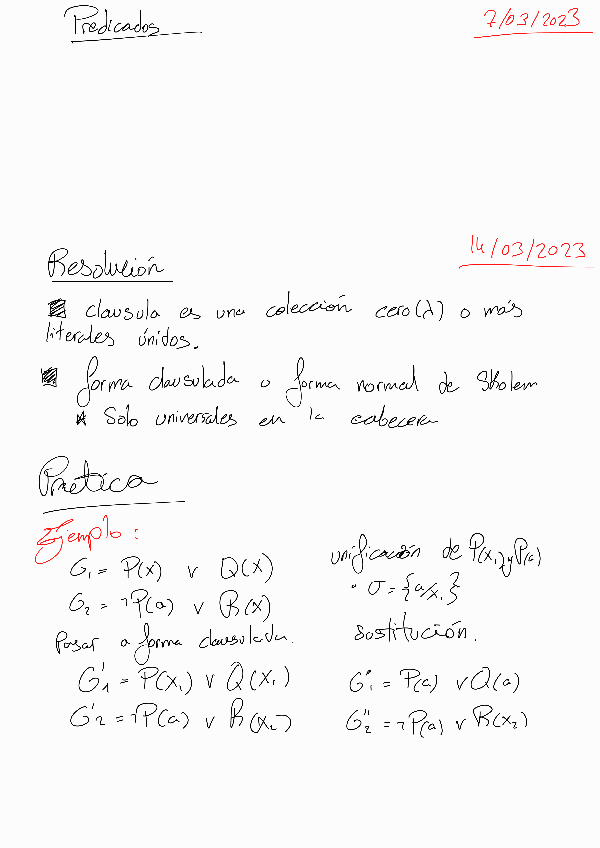 Predicados
7/03/2023
Resolución
14/03/2023
clausula es una colección cero(λ) o más
literales únidos.
forma clausulada o forma normal de Skolem
* Solo universales en la cabecera
Práctica
Ejemplo:
G₁ = P(x) ∨ Q(x)
G₂ = ¬P(a) ∨ R(x)
Pasar a forma clausulada.
G'₁ = P(x₁) ∨ Q(x₁)
G'₂ = ¬P(a) ∨ R(x₂)
unificación de P(x₁) y P(a)
· σ = {a/x₁}
sustitución.
G''₁ = P(a) ∨ Q(a)
G''₂ = ¬P(a) ∨ R(x₂)